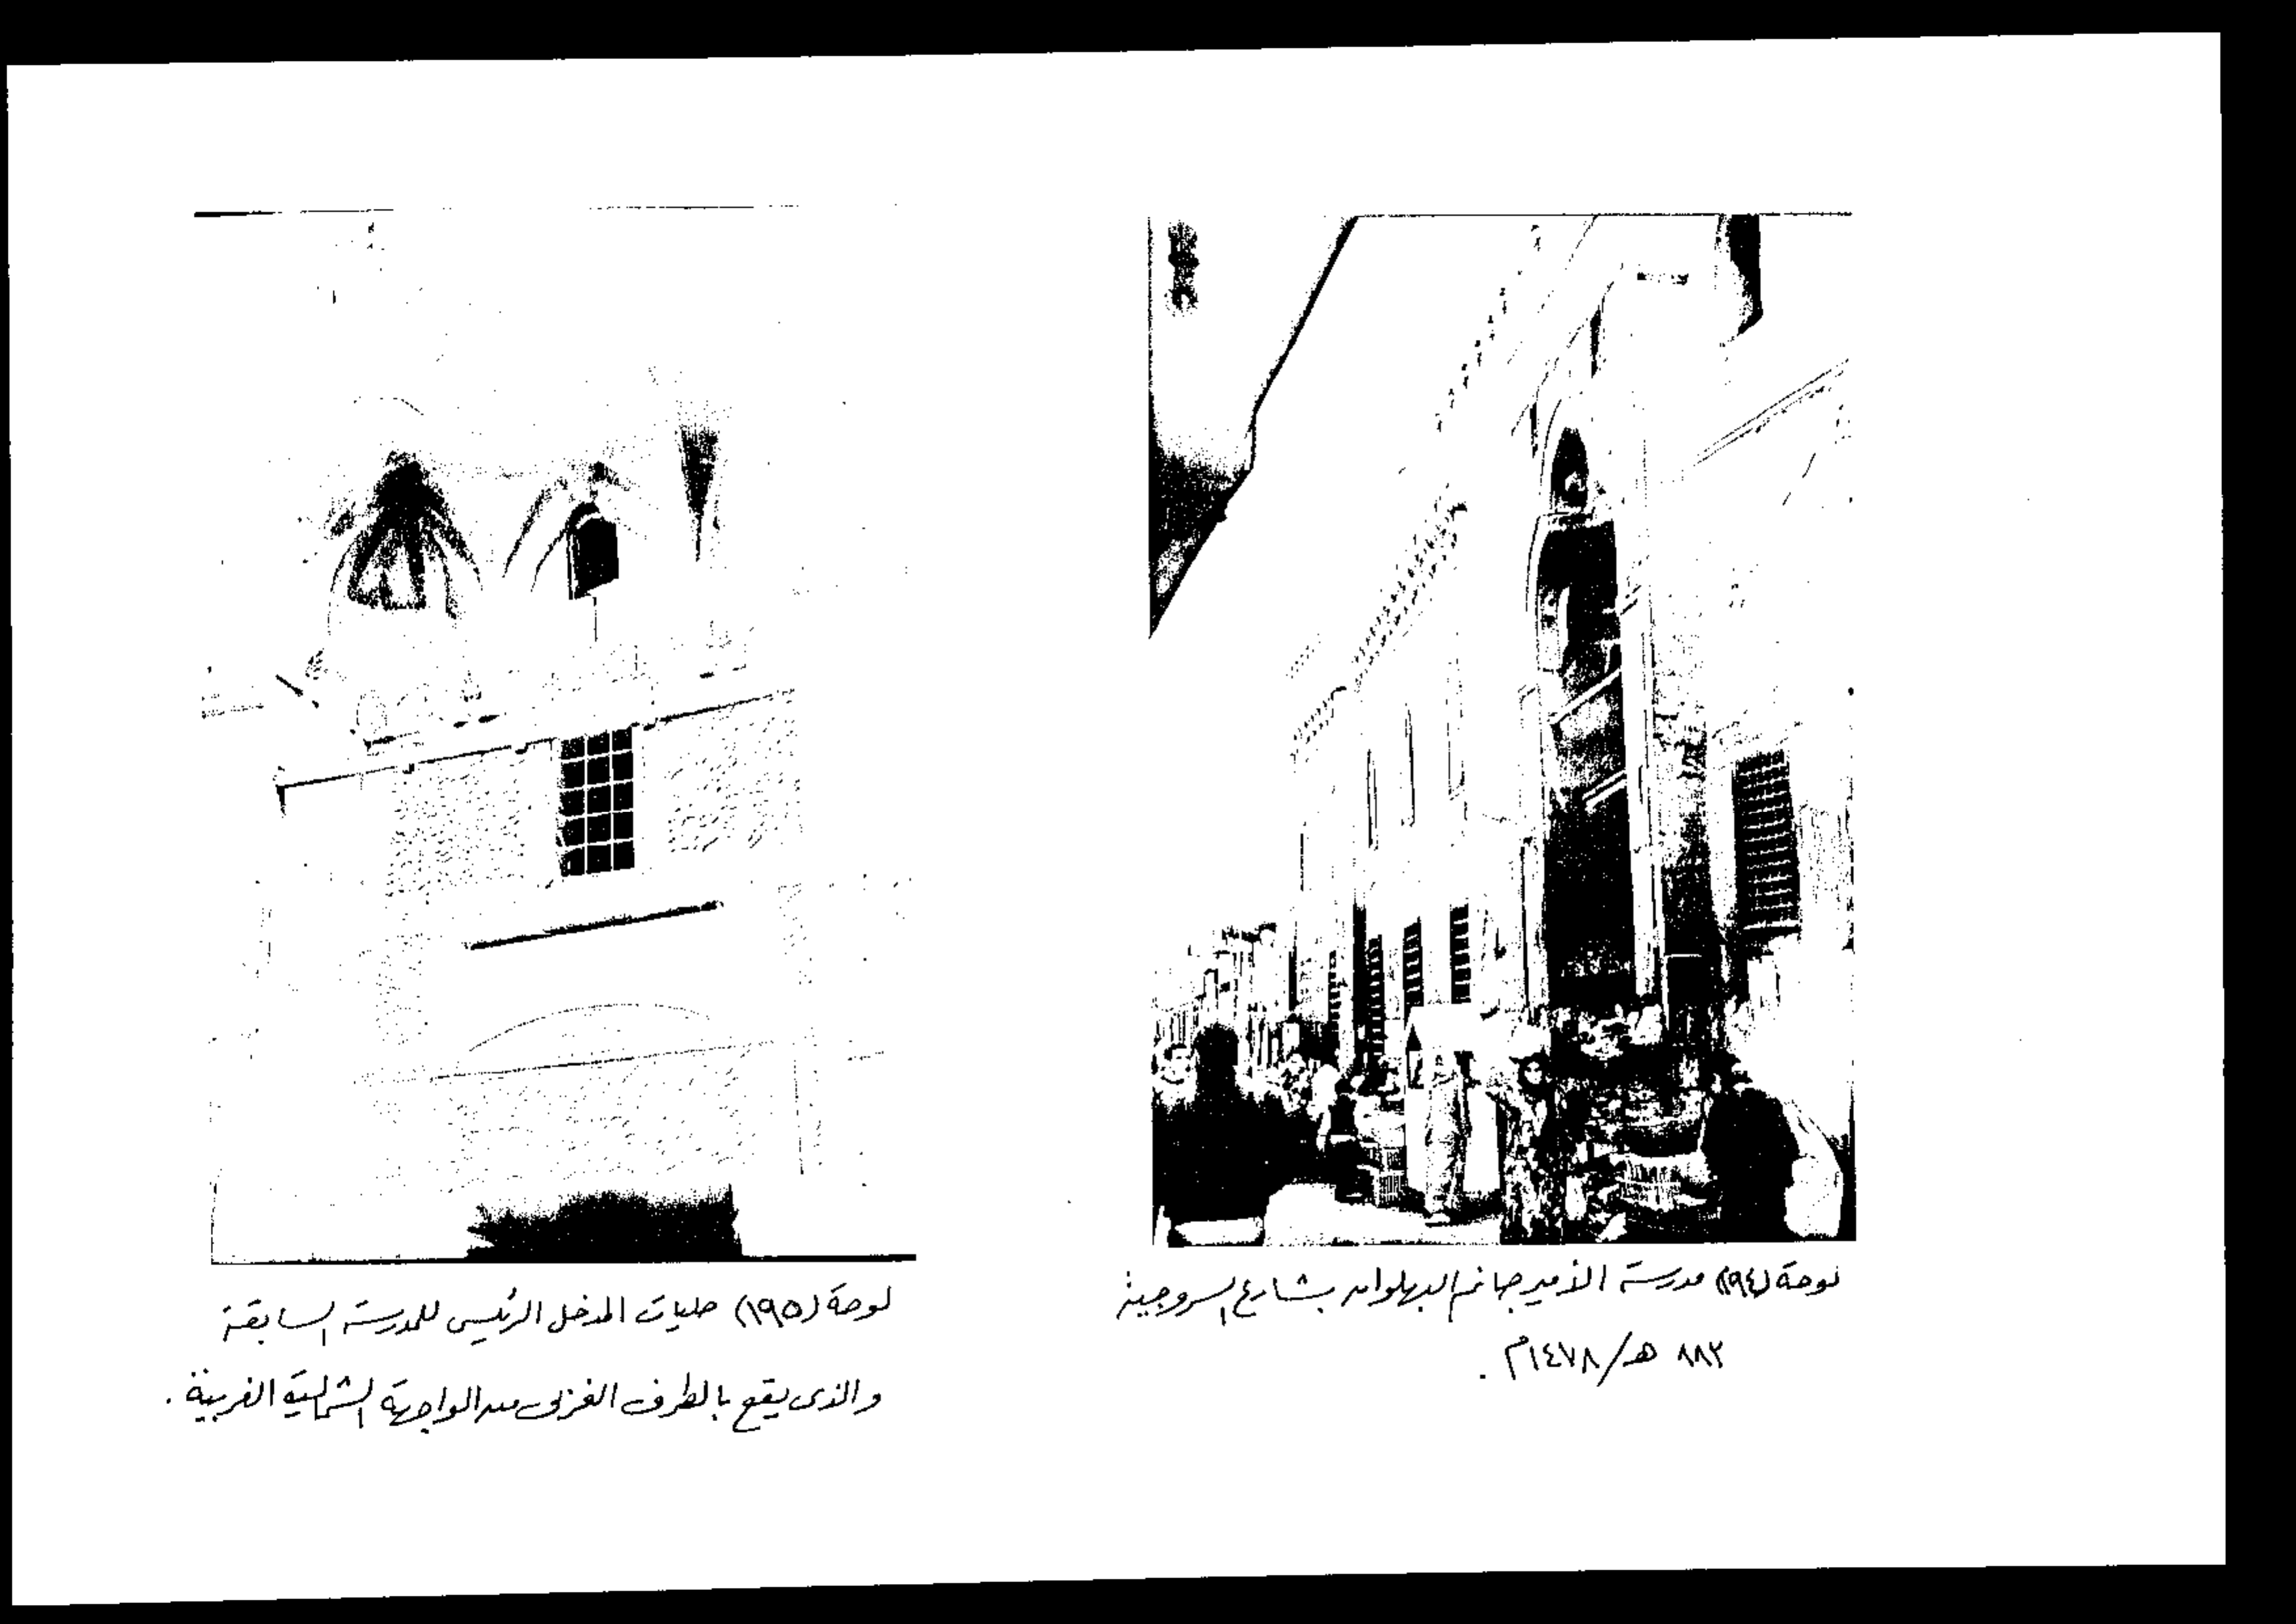 لوحة (١٩٤) مدرسة الأمير جانم البهلوان بشارع السروجية
٨٨٣ هـ/١٤٧٨م .
لوحة (١٩٥) حليات المدخل الرئيسى للمدرسة السابقة
والذى يقع بالطرف الغربى من الواجهة الشمالية الغربية .